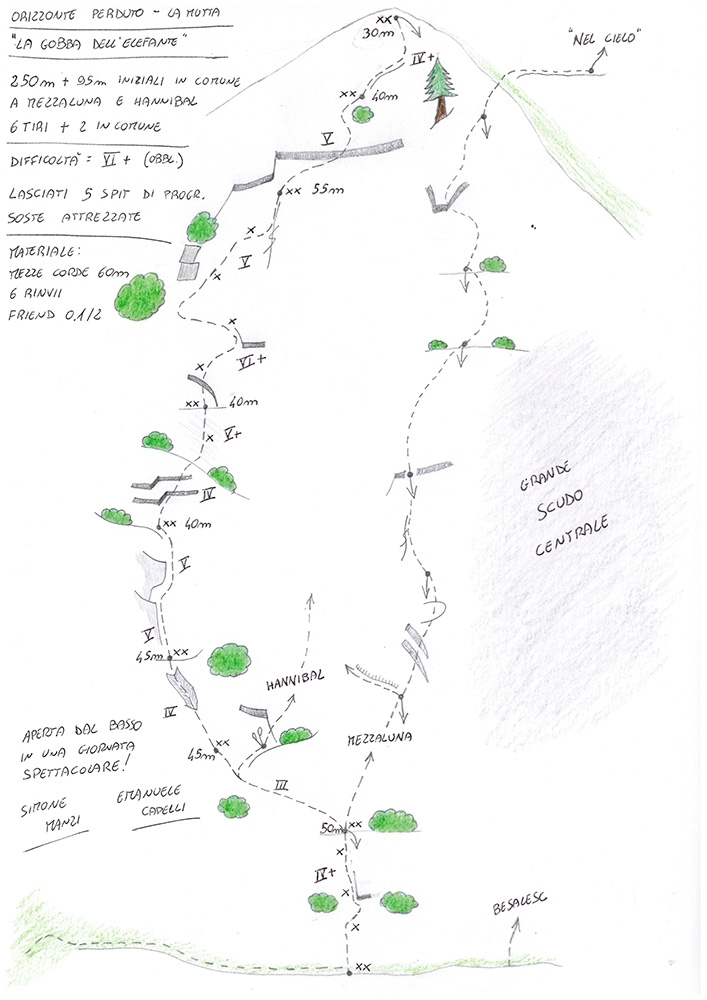 ORIZZONTE PERDUTO - LA MUTTA
"LA GOBBA DELL'ELEFANTE"
250m + 95m INIZIALI IN COMUNE
A MEZZALUNA E HANNIBAL
6 TIRI + 2 IN COMUNE
DIFFICOLTÀ = VI+ (OBBL.)
LASCIATI 5 SPIT DI PROGR.
SOSTE ATTREZZATE
MATERIALE:
MEZZE CORDE 60m
6 RINVII
FRIEND 0.1/2
xx
30m
IV+
"NEL CIELO"
xx 40m
V
xx 55m
x
V
x
x
VI+
x
xx 40m
x V+
IV
xx 40m
V
V
45m xx
IV
HANNIBAL
xx
45m
III
MEZZALUNA
GRANDE
SCUDO
CENTRALE
APERTA DAL BASSO
IN UNA GIORNATA
SPETTACOLARE!
SIMONE
MANZI
EMANUELE
CAPELLI
50m xx
x
IV+
x
x
xx
BESALESC